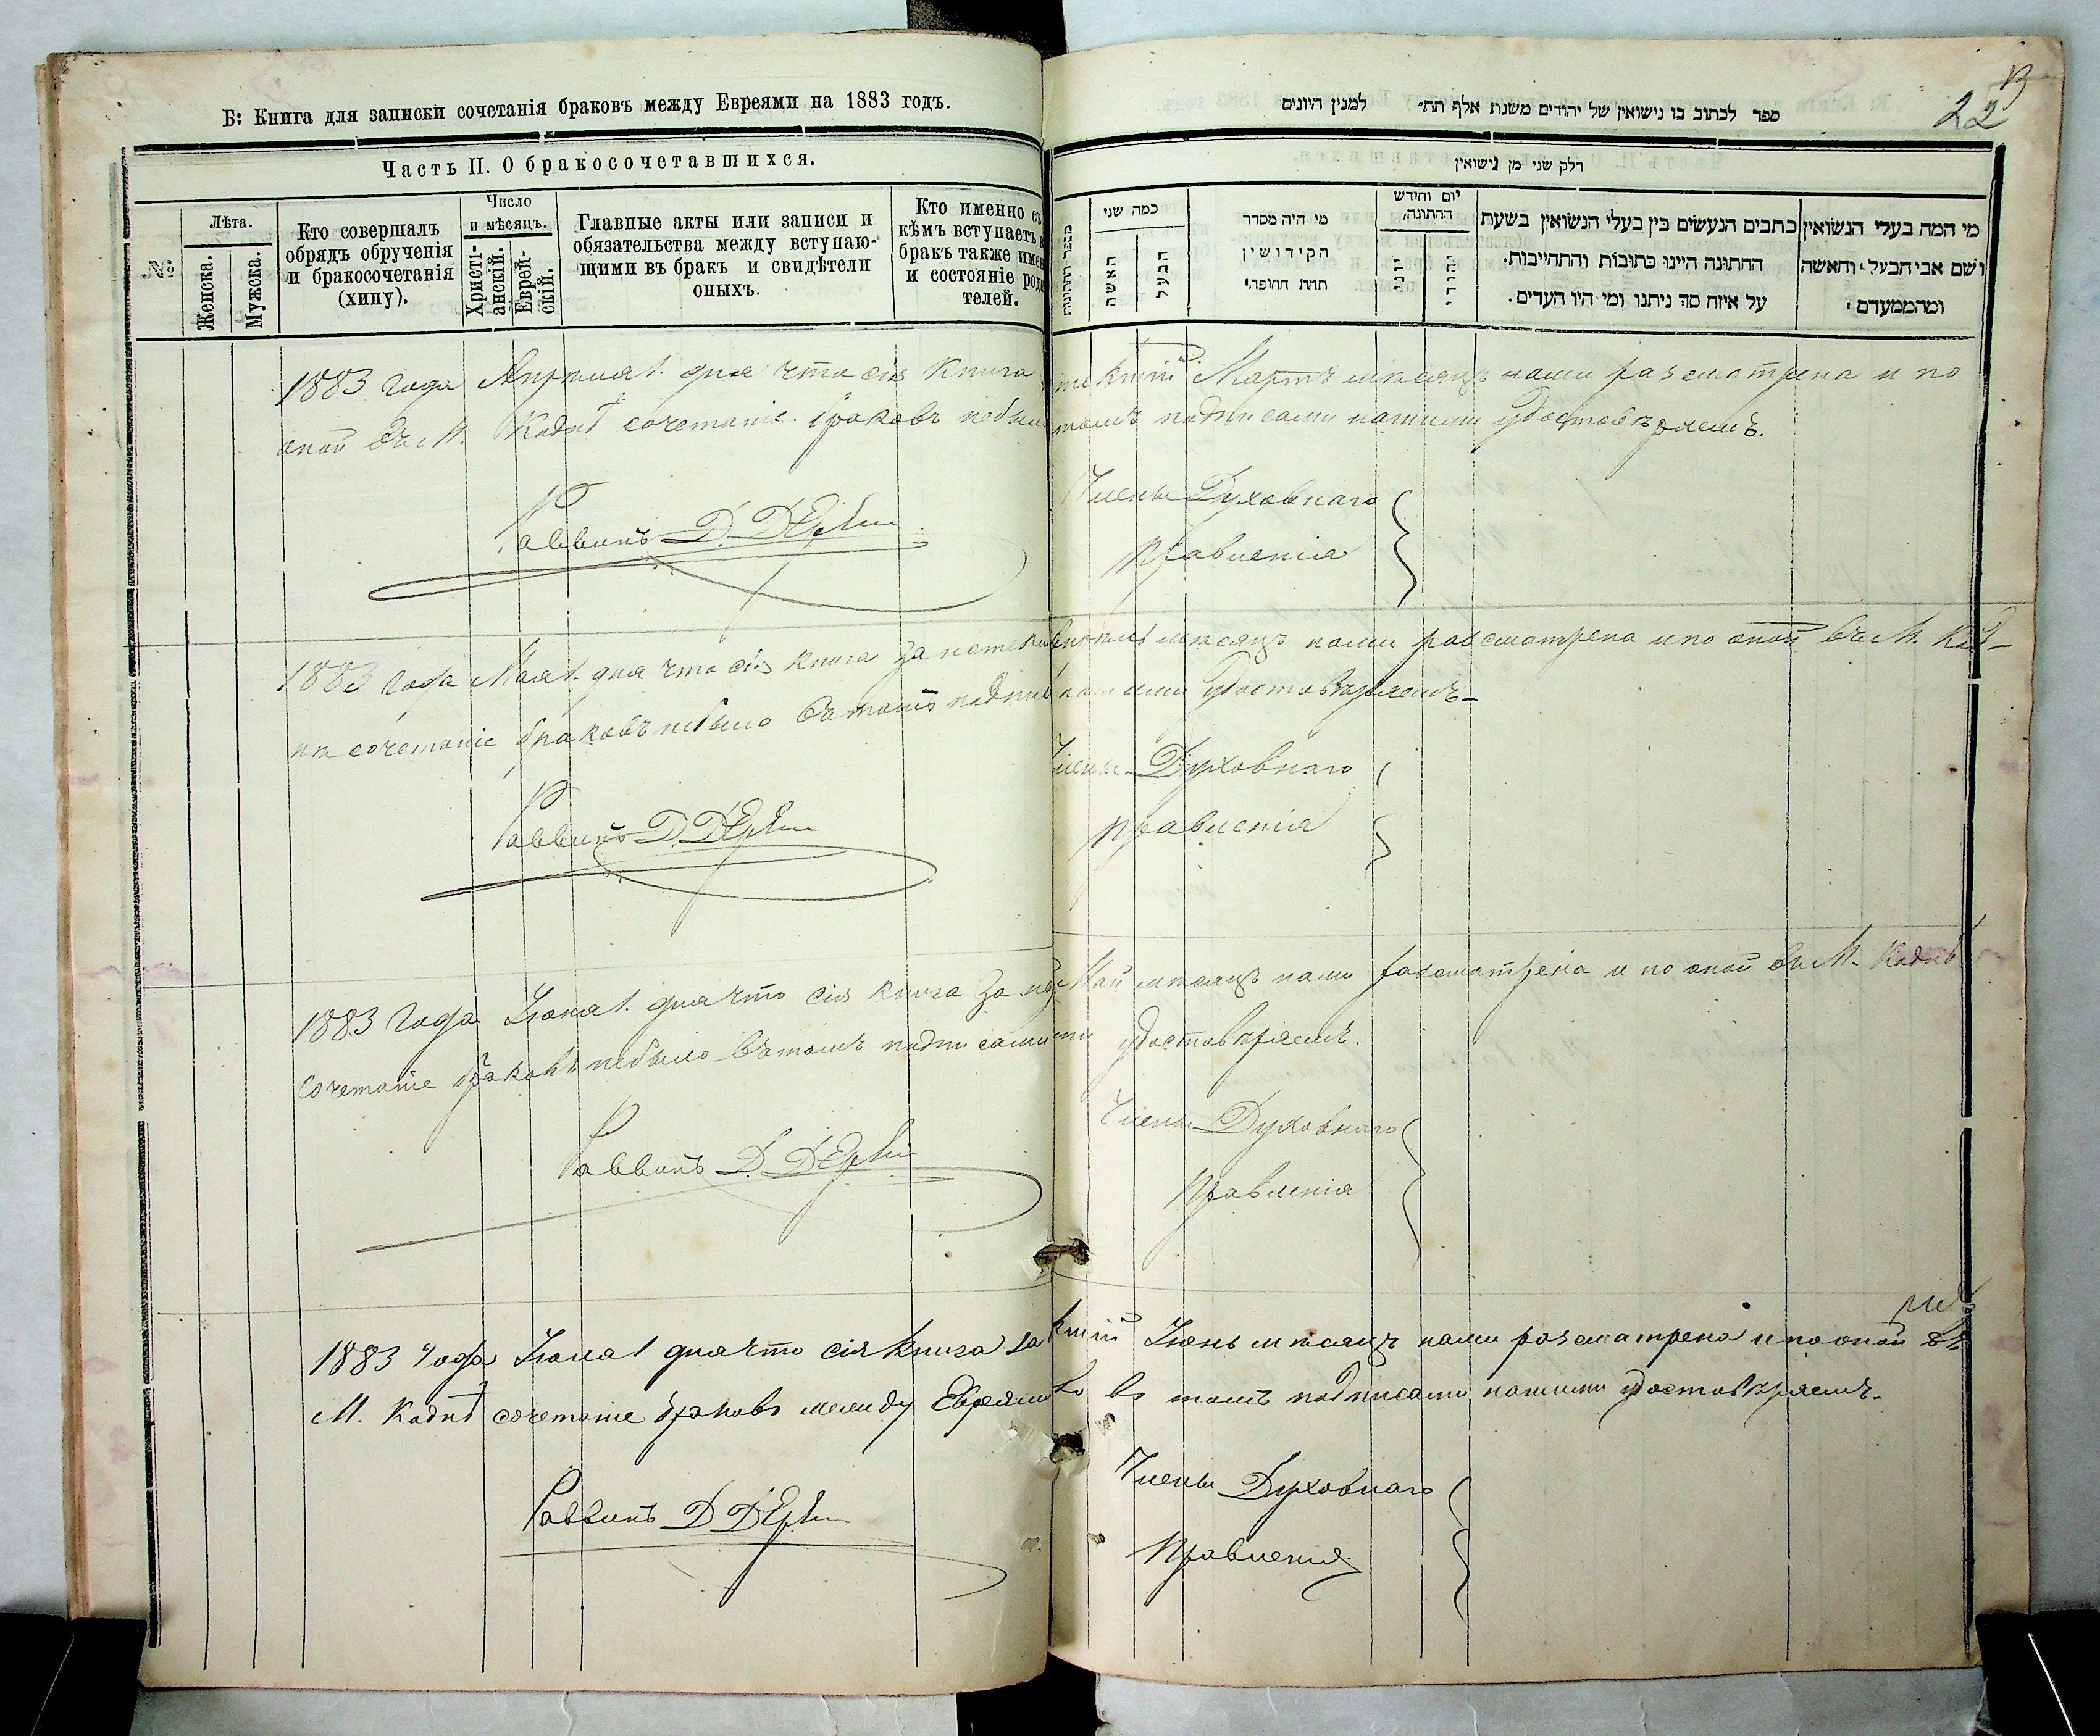 Б: Книга для записки сочетанія браковъ между Евреями на 1883 годъ.
Часть II. О бракосочетавшихся.
№:
Лѣта.
Женска.
Мужеска.
Кто совершалъ
обрядъ обрученія
и бракосочетанія
(хипу).
Число
и мѣсяцъ.
Христі-
анскій.
Еврей-
скій.
Главные акты или записи и
обязательства между вступаю-
щими въ бракъ и свидѣтели
оныхъ.
Кто именно съ
кѣмъ вступаетъ
бракъ также
и состояніе
телей.
22
ספר לכתוב בו נישואין של יהודים משנת אלף תת״ למנין היונים
חלק שני מן נישואין
מספר החתונות
כמה שני
האשה
הבעל
מי היה מסדר
הקידושין
תחת החופה
יום וחודש
החתונה
יוני
יהודי
כתבים הנעשים בין בעלי הנשואין בשעת
החתונה היינו כתובות והתחייבות
על איזה סך ניתנו ומי היו העדים
מי המה בעלי הנשואין
ושם אבי הבעל והאשה
ומהממעדם
1883 года Апреля 1. дня что сія книга Мартъ мѣсяцъ нами разсмотрена и по
оной въ М. сочетаніе браковъ подписами нашими удостовѣряемъ.
Члены Духовнаго
Правленія
Раввинъ Д.
1883 года Мая 1. дня что сія книга за мѣсяцъ нами разсмотрена и по оной въ М.
сочетаніе браковъ небыло въ томъ нашими удостовѣряемъ
Члены Духовнаго
Правленія
Раввинъ Д.
1883 года Іюня 1. дня что сія книга за Май мѣсяцъ нами разсмотрена и по оной въ М.
сочетаніе браковъ небыло въ томъ подписами удостовѣряемъ.
Члены Духовнаго
Правленія
Раввинъ Д.
1883 года 1 дня что сія книга за Іюнь мѣсяцъ нами разсмотрена и по оной въ
М. сочетаніе браковъ между въ томъ подписами нашими удостовѣряемъ
Члены Духовнаго
Правленія
Раввинъ Д